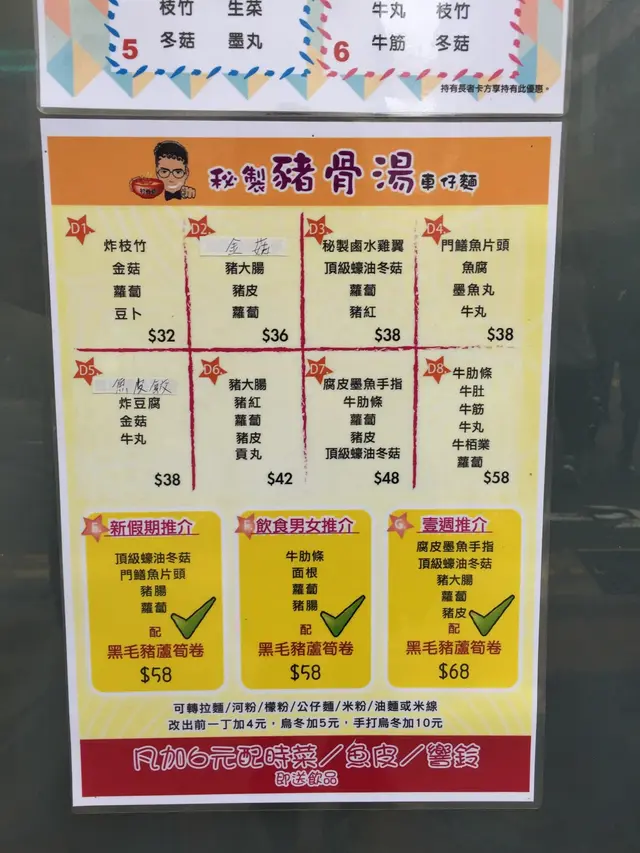 枝竹 生菜
5 冬菇 墨丸
牛丸 枝竹
6 牛筋 冬菇
持有長者卡方享持有此優惠。
秘製豬骨湯車仔麵
D1
炸枝竹
金菇
蘿蔔
豆卜
$32
D2
金菇
豬大腸
豬皮
蘿蔔
$36
D3
秘製鹵水雞翼
頂級蠔油冬菇
蘿蔔
豬紅
$38
D4
門鱔魚片頭
魚腐
墨魚丸
牛丸
$38
D5
魚皮餃
炸豆腐
金菇
牛丸
$38
D6
豬大腸
豬紅
蘿蔔
豬皮
貢丸
$42
D7
腐皮墨魚手指
牛肋條
蘿蔔
豬皮
頂級蠔油冬菇
$48
D8
牛肋條
牛肚
牛筋
牛丸
牛栢業
蘿蔔
$58
E 新假期推介
頂級蠔油冬菇
門鱔魚片頭
豬腸
蘿蔔
配
黑毛豬蘆筍卷
$58
F 飲食男女推介
牛肋條
面根
蘿蔔
豬腸
配
黑毛豬蘆筍卷
$58
G 壹週推介
腐皮墨魚手指
頂級蠔油冬菇
豬大腸
蘿蔔
豬皮
配
黑毛豬蘆筍卷
$68
可轉拉麵/河粉/檬粉/公仔麵/米粉/油麵或米線
改出前一丁加4元，烏冬加5元，手打烏冬加10元
凡加6元配時菜/魚皮/響鈴
即送飲品